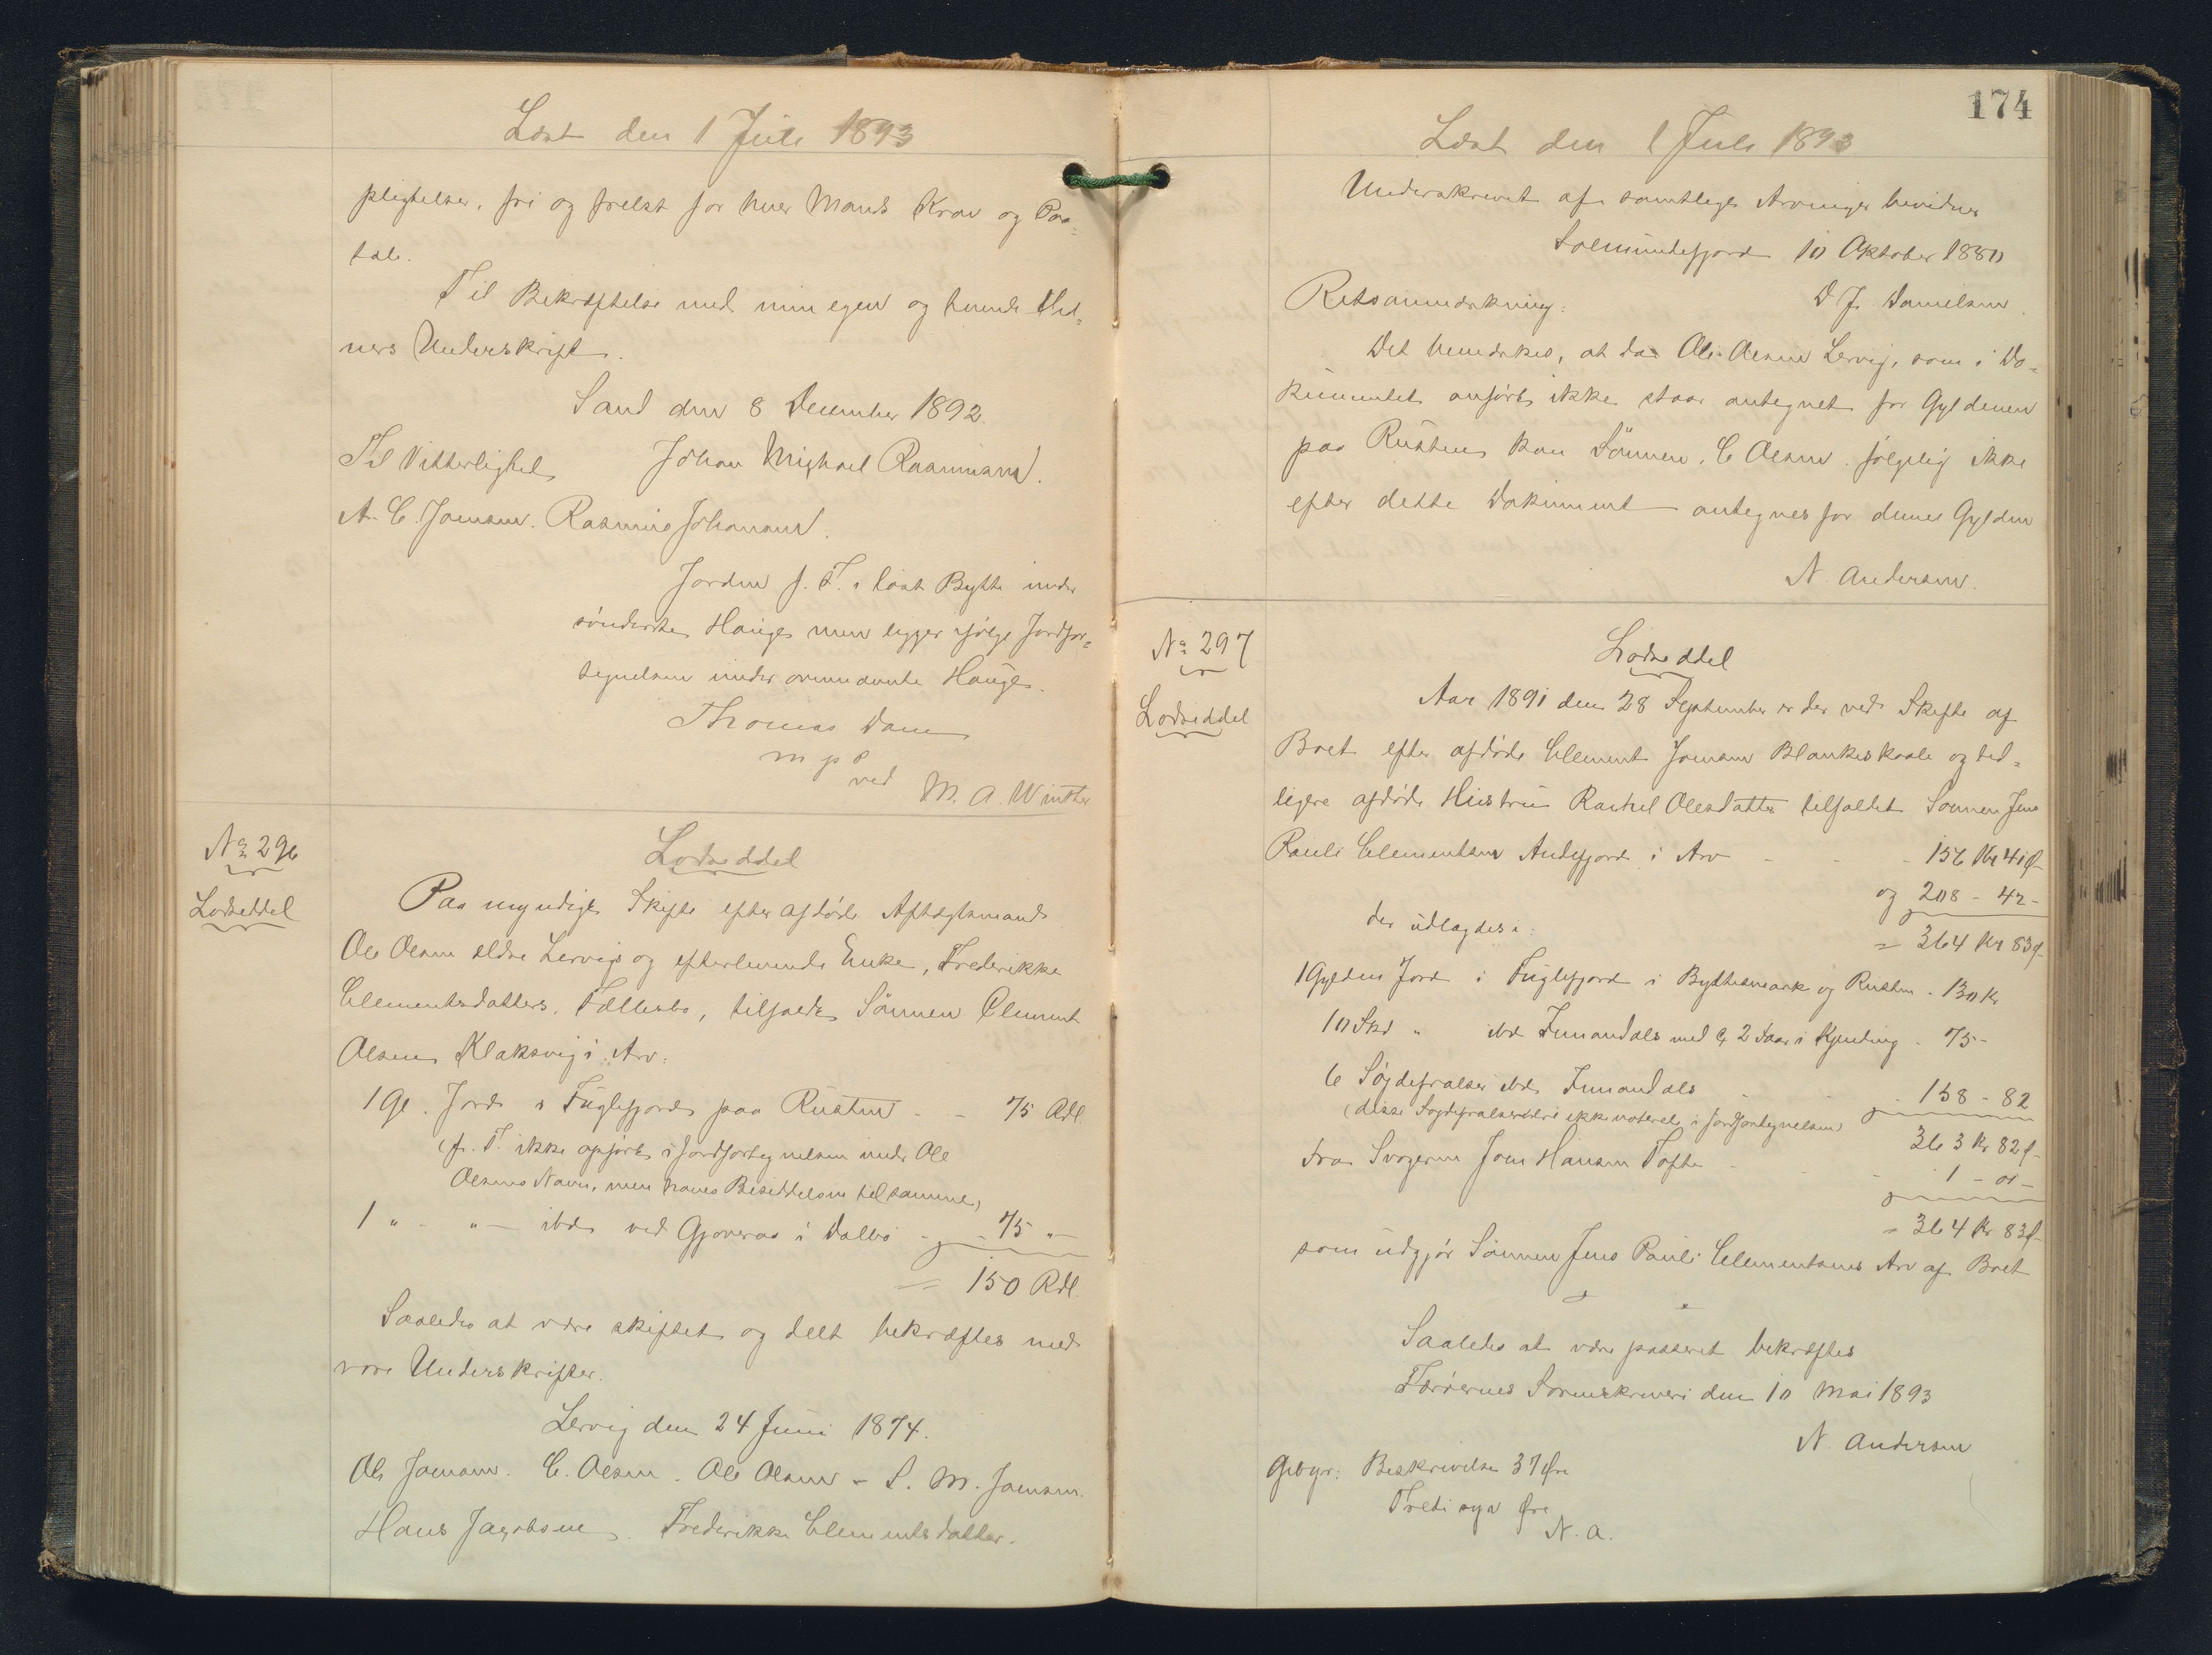 Læst den 1 Juli 1893
pligtelser, fri og frelst for hver Mands Krav og Paa-
tale.
Til Bekræftelse med min egen og tvende Vid-
ners Underskrift.
Sand den 8 December 1892.
Til Vitterlighed Johan Michael Rasmussen.
A. C. Joensen. Rasmus Johansen.
Jorden f. T. i løst Bytte under
sønderste Hauge men ligger ifølge Jordfor-
tegnelsen under ovennævnte Hauge.
Thomas Dam
m p
ved M. A. Winther
No 296
Lodseddel
Lodseddel
Paa myndige Skifte efter afdøde Aftægtsmand
Ole Olsen ældre Lervig og efterlevende Enke, Frederikke
Clementsdatters, Fællesbo, tilfaldt Sønnen Clement
Olsen Klaksvig i Arv:
1 Gl. Jord i Fuglefjord paa Rusten - - 75 Rdl.
(f. T. ikke opført i Jordfortegnelsen under Ole
Olsens Navn, men haves Besiddelsen til samme)
1 " - " - ibd. ved Gjoveraa i Dalbø - - 75 "
= 150 Rdl.
Saaledes at være skiftet og delt bekræftes med
vore Underskrifter.
Lervig den 24 Juni 1874.
Ole Joensen. C. Olsen. Ole Olsen - S. M. Joensen.
Hans Jacobsen. Frederikke Clementsdatter.
174
Læst den 1 Juli 1893
Underskrevet af samtlige Arvinger bevidnes
Solmundefjord 10 Oktober 1880
D J. Danielsen.
Retsanmærkning:
Det bemærkes, at da Ole Olsen Lervig, som i Do-
kumentet anført ikke staar antegnet for Gylden
paa Rusten kan Sønnen, C Olsen følgelig ikke
efter dette Dokument antegnes for denne Gylden
N. Andersen.
No 297
Lodseddel
Lodseddel
Aar 1891 den 28 September er der ved Skifte af
Boet efter afdøde Clement Joensen Blankeskaale og tid-
ligere afdøde Hustru Rachel Olesdatter tilfaldet Sønnen Jens
Pauli Clementsen Andefjord i Arv - - - 156 Kr 41 Ø
og 208 - 42 -
= 364 Kr 83 Ø
der udlagdes i:
1 Gylden Jord i Fuglefjord i Byttesmark og Rusten - 130 Kr
10 Skd " ibd Innandals med 2 Faar i Kjending - 75 -
6 ibd. Innandals - - 158 - 82
(disse ikke noteret i Jordfortegnelsen)
363 Kr 82 Ø
fra Svogeren Joen Hansen Tofte - - - 1 - 01 -
= 364 Kr 83 Ø
som udgjør Sønnen Jens Pauli Clementsens Arv af Boet
Saaledes at være passeret bekræftes
Færøernes Sorenskriveri den 10 Mai 1893
N. Andersen
Gebyr: Beskrivelse 37 Øre
Tredi syv Øre
N. A.